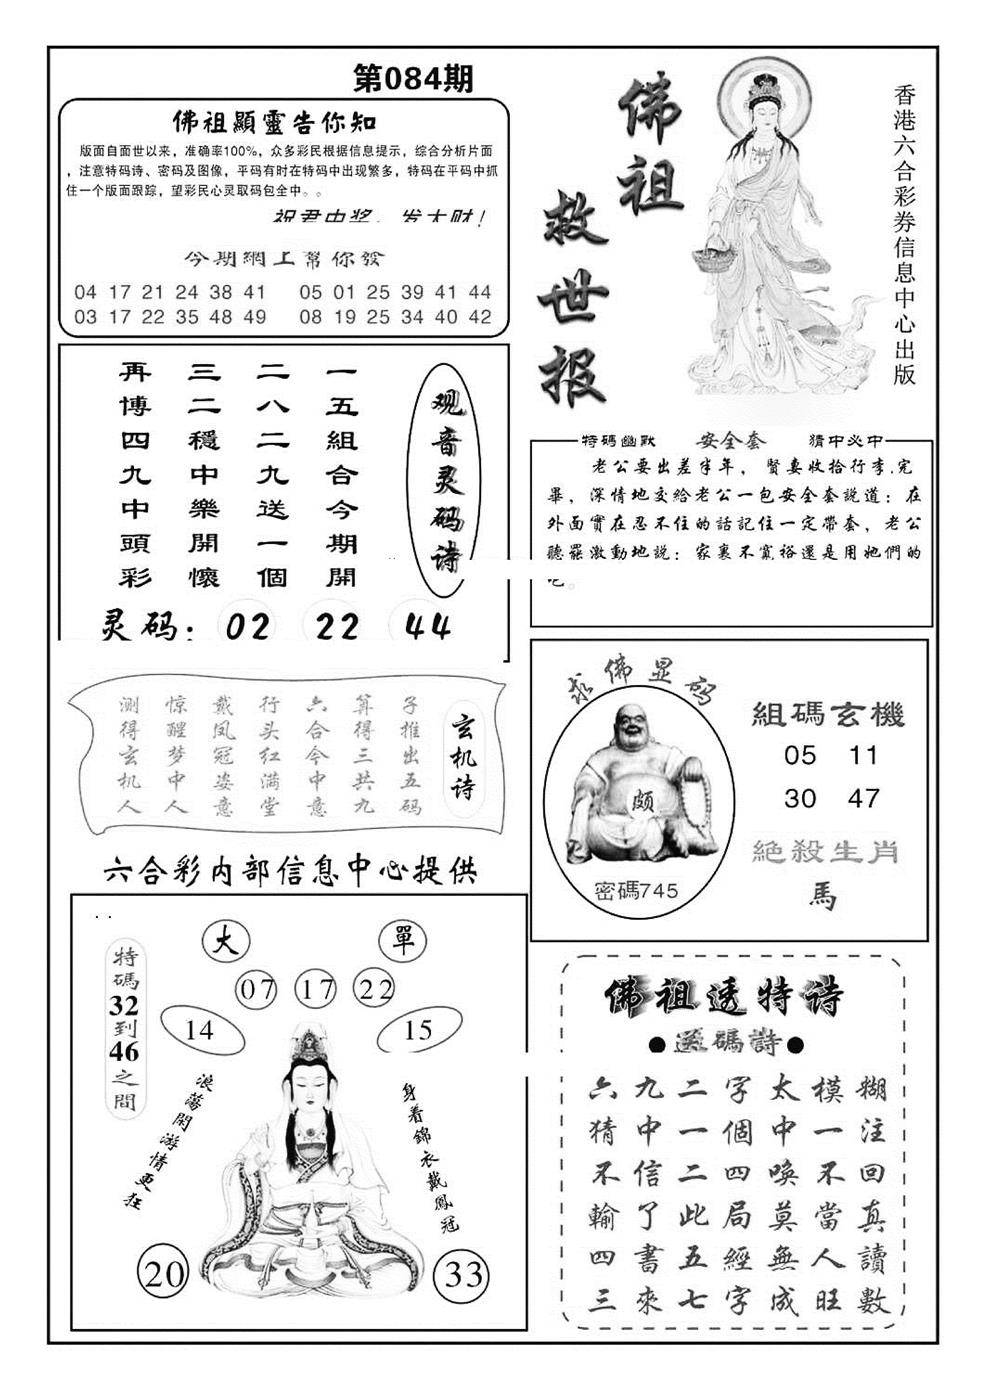 第084期
佛祖顯靈告你知
版面自面世以来，准确率100%，众多彩民根据信息提示，综合分析片面
，注意特码诗、密码及图像，平码有时在特码中出现繁多，特码在平码中抓
住一个版面跟踪，望彩民心灵取码包全中。。
祝君中奖，发大财！
今期網上幫你發
04 17 21 24 38 41 05 01 25 39 41 44
03 17 22 35 48 49 08 19 25 34 40 42
佛祖
救世报
香港六合彩券信息中心出版
观音灵码诗
一五組合今期開
二八二九送一個
三二穩中樂開懷
再博四九中頭彩
灵码：02 22 44
特碼幽默 安全套 猜中必中
老公要出差半年，賢妻收拾行李.完
畢，深情地交給老公一包安全套説道：在
外面實在忍不住的話記住一定帶套，老公
聽罷激動地説：家裏不寬裕還是用她們的
吧。
玄机诗
子推出五码
算得三共九
六合今中意
行头红满堂
戴凤冠姿意
惊醒梦中人
测得玄机人
六合彩内部信息中心提供
求佛显码
颇
密碼745
組碼玄機
05 11
30 47
絕殺生肖
馬
大 單
07 17 22
14 15
特碼32到46之間
浪蕩閑游情更狂
身着錦衣戴鳳冠
20 33
佛祖透特诗
●送碼詩●
糊注回真讀數
模一不當人旺
太中喚莫無成
字個四局經字
二一二此五七
九中信了書來
六猜不輸四三